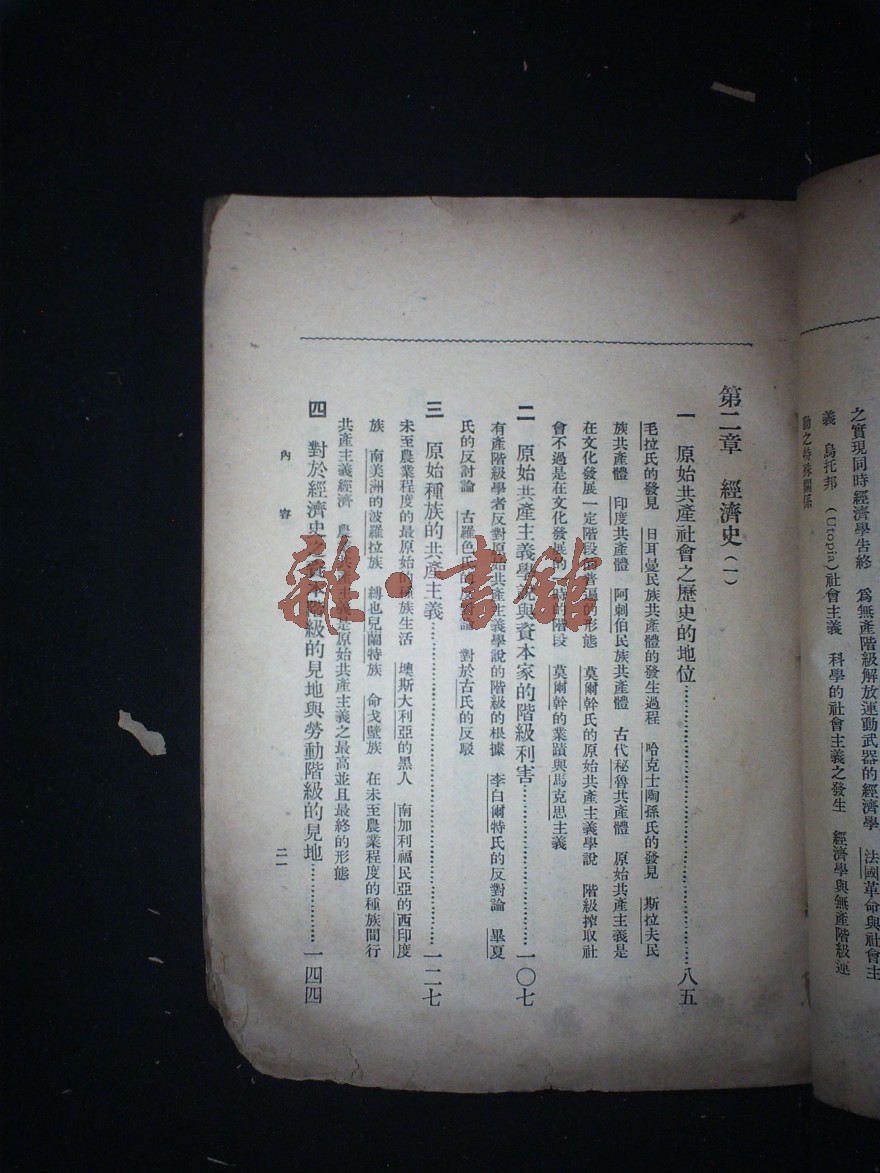 之實現同時經濟學告終　爲無產階級解放運動武器的經濟學　法國革命與社會主
義　烏托邦（Utopia）社會主義　科學的社會主義之發生　經濟學與無產階級運
動之特殊關係
第二章　經濟史（一）
一　原始共產社會之歷史的地位……八五
毛拉氏的發見　日耳曼民族共產體的發生過程　哈克士陶孫氏的發見　斯拉夫民
族共產體　印度共產體　阿剌伯民族共產體　古代秘魯共產體　原始共產主義是
在文化發展一定階段的普遍的形態　莫爾幹氏的原始共產主義學說　階級搾取社
會不過是在文化發展的一時的階段　莫爾幹的業蹟與馬克思主義
二　原始共產主義學說與資本家的階級利害……一〇七
有產階級學者反對原始共產主義學說的階級的根據　李白爾特氏的反對論　畢夏
氏的反討論　古羅色氏的反對論　對於古氏的反駁
三　原始種族的共產主義……一二七
未至農業程度的最原始的種族生活　墺斯大利亞的黑人　南加利福民亞的西印度
族　南美洲的波羅拉族　縛也兒蘭特族　命戈壁族　在未至農業程度的種族間行
共產主義經濟　農業共產主義是原始共產主義之最高並且最終的形態
四　對於經濟史之資本階級的見地與勞動階級的見地……一四四
內容
二一
雜·書館